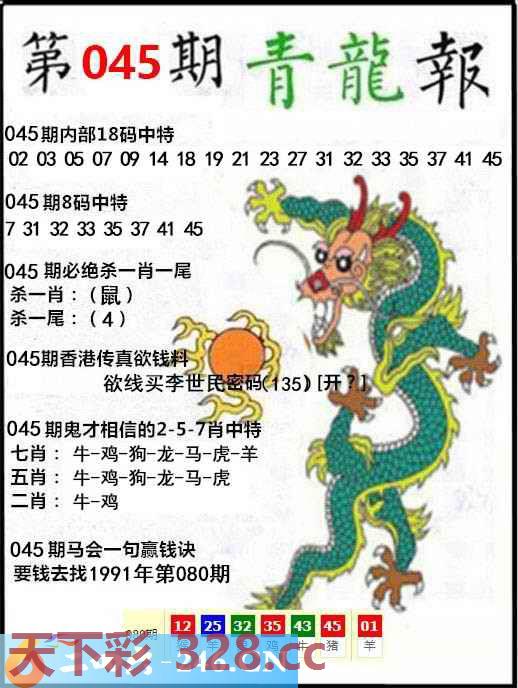 第045期青龍報
045期内部18码中特
02 03 05 07 09 14 18 19 21 23 27 31 32 33 35 37 41 45
045期8码中特
7 31 32 33 35 37 41 45
045期必绝杀一肖一尾
杀一肖：（鼠）
杀一尾：（4）
045期香港传真欲钱料
欲线买李世民密码(135)[开?]
045期鬼才相信的2-5-7肖中特
七肖：牛-鸡-狗-龙-马-虎-羊
五肖：牛-鸡-狗-龙-马-虎
二肖：牛-鸡
045期马会一句赢钱诀
要钱去找1991年第080期
12 25 32 35 43 45 01
鸡 牛 猪 羊
天下彩-328.cc